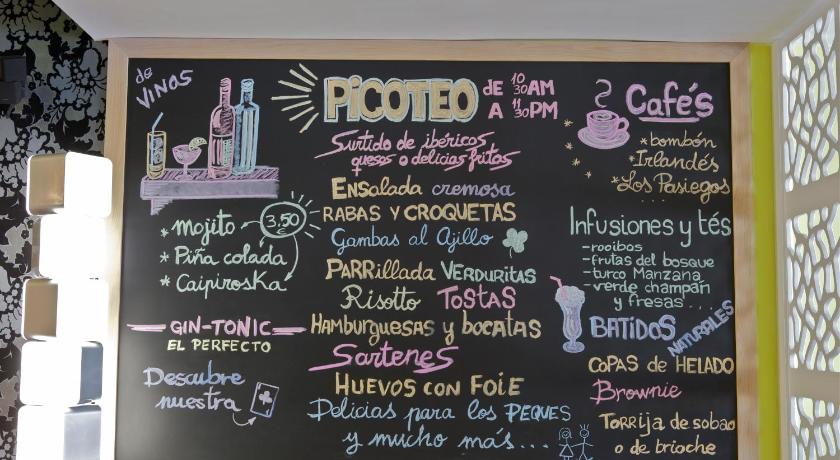 de
VINOS
* mojito
3,50
* Piña colada
* Caipiroska
GIN-TONIC
EL PERFECTO
Descubre
nuestra
PiCOTEO
dE 10 30 AM
A 11 30 PM
Surtido de ibéricos
quesos o delicias fritas
ENsalada cremosa
RABAS Y CROQUETAS
Gambas al Ajillo
PARRillada VERDURITAS
Risotto TOSTAS
HAMBURGUESAS y bocatas
Sartenes
HUEVOS CON FOIE
Delicias para los PEQUES
y mucho más...
Cafés
* bombón
* Irlandés
* Los Pasiegos
...
Infusiones y tés
- rooibos
- frutas del bosque
- turco Manzana
- verde champán
y fresas...
BATiDOS NATURALES
COPAS de HELADO
Brownie
TORRija de sobao
o de brioche